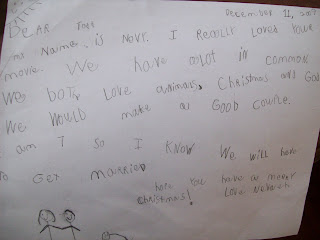 December 11, 
Dear 
my Name is I Really Loved Your
movie. We have alot in common
We both Love animals, Christmas and God
We WOULD make a Good Couple.
am 7 so I KNOW We will have
to Get married
hope You have a merry
Christmas!
Love